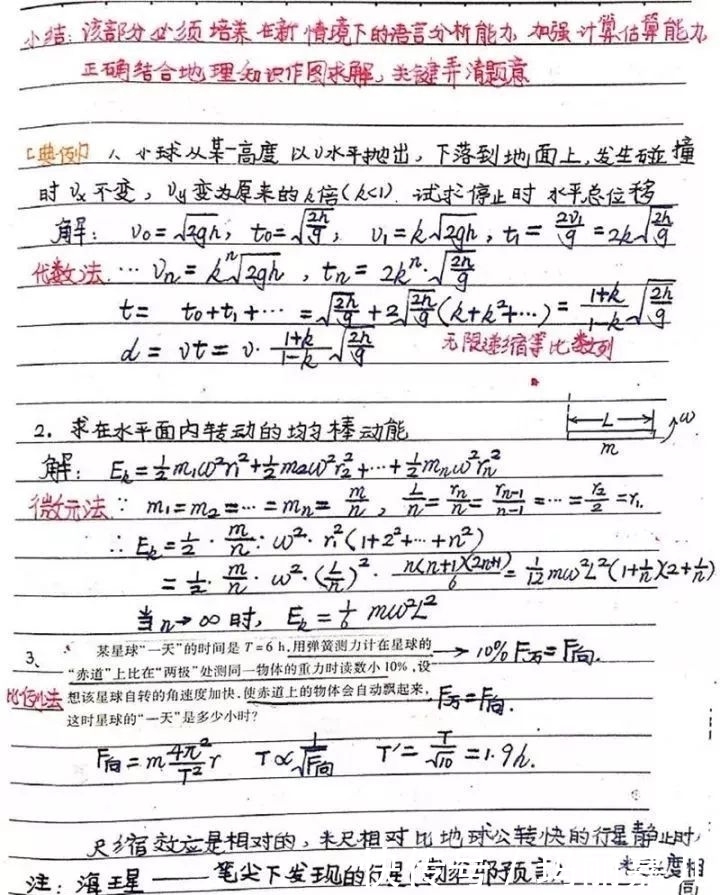 小结: 该部分必须培养在新情境下的语言分析能力 加强计算估算能力
正确结合地理知识作图求解, 关键弄清题意
[典例] 1. 小球从某一高度以v水平抛出, 下落到地面上, 发生碰撞
时 vₓ不变, v_y变为原来的k倍(k<1). 试求停止时水平总位移
解: v₀=√(2gh), t₀=√(2h/g); v₁=k√(2gh), t₁=2v₁/g=2k√(2h/g)
代数法 … vₙ=kⁿ√(2gh), tₙ=2kⁿ·√(2h/g)
t= t₀+t₁+… =√(2h/g)+2√(2h/g)(k+k²+…)=(1+k)/(1-k)√(2h/g)
d=vt=v·(1+k)/(1-k)√(2h/g) 无限递缩等比数列
2. 求在水平面内转动的均匀棒动能 L ω
m
解: Eₖ=½m₁ω²r₁²+½m₂ω²r₂²+…+½mₙω²rₙ²
微元法 ∵ m₁=m₂=…=mₙ=m/n, L/n=rₙ/n=rₙ₋₁/(n-1)=…=r₂/2=r₁.
∴ Eₖ=½·m/n·ω²·r₁²(1+2²+…+n²)
=½·m/n·ω²·(L/n)²·n(n+1)(2n+1)/6=1/12 mω²L²(1+1/n)(2+1/n)
当n→∞时, Eₖ=1/6 mω²L²
3、 某星球“一天”的时间是 T=6 h,用弹簧测力计在星球的
“赤道”上比在“两极”处测同一物体的重力时读数小 10%,设 → 10% F万=F向.
比例法 想该星球自转的角速度加快,使赤道上的物体会自动飘起来, F万=F向.
这时星球的“一天”是多少小时?
F向=m 4π²/T² r T∝1/√F向 T′=T/√10=1.9h.
尺缩效应是相对的, 米尺相对比地球公转快的行星静止时,
注: 海王星——笔尖下发现的行星